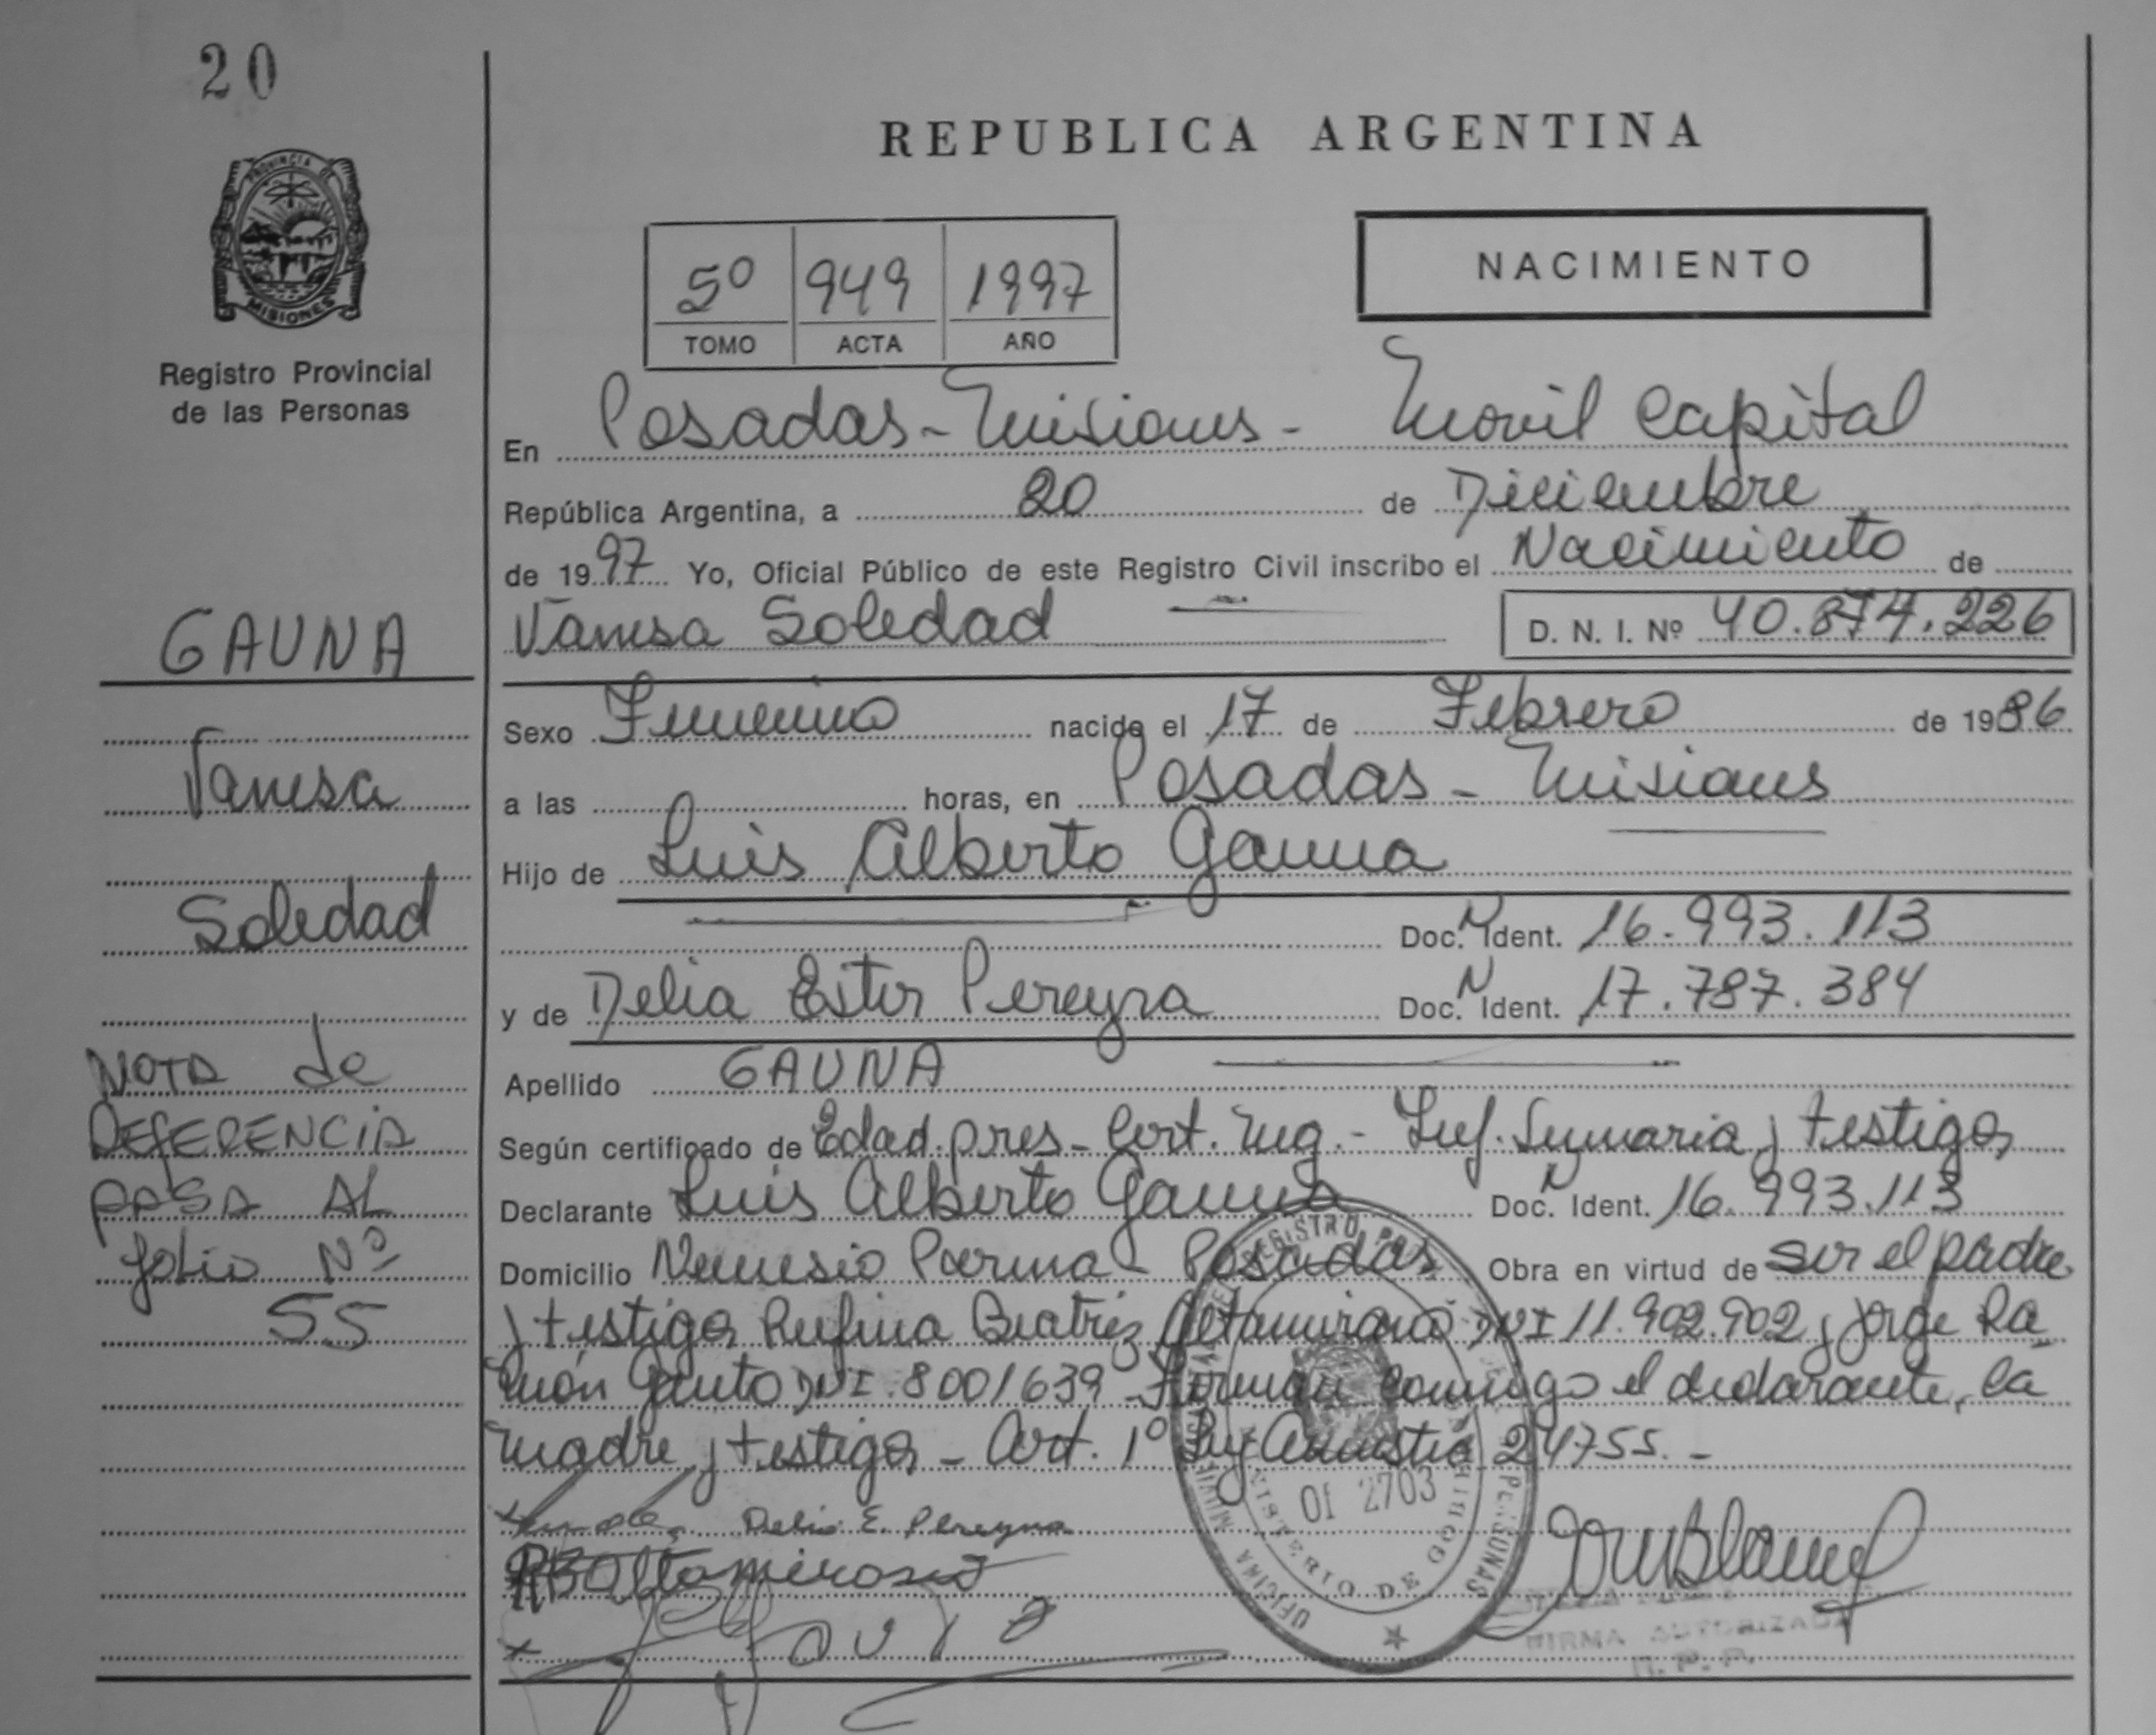 20
PROVINCIA DE
MISIONES
Registro Provincial
de las Personas
REPUBLICA ARGENTINA
5º 949 1997
TOMO ACTA AÑO
NACIMIENTO
En Posadas - Misiones - Movil Capital
República Argentina, a 20 de Diciembre
de 1997 Yo, Oficial Público de este Registro Civil inscribo el Nacimiento de
Vanesa Soledad D. N. I. Nº 40.874.226
Sexo Femenino nacido el 17 de Febrero de 1986
a las horas, en Posadas - Misiones
Hijo de Luis Alberto Gauna
Doc. N Ident. 16.993.113
y de Delia Ester Pereyra Doc. N Ident. 17.787.384
Apellido GAUNA
Según certificado de Edad pres - Cert. Neg. - Inf. Sumaria y testigos
Declarante Luis Alberto Gauna Doc. N Ident. 16.993.113
Domicilio Nemesio Parma - Posadas Obra en virtud de ser el padre
y testigos Rufina Beatriz Altamirano DNI 11.902.902 y Jorge Ra-
món DNI. 8001639 - Firman conmigo el declarante, la
madre y testigos - Art. 1º Ley Amnistia 24755. -
Delia E. Pereyra
RBAltamirano
GAUNA
Vanesa
Soledad
NOTA de
REFERENCIA
PASA AL
folio Nº
55
REGISTRO
PERSONAS
OFICINA
MINISTERIO DE GOB
OF 2703
FIRMA AUTORIZADA
R. P. P.